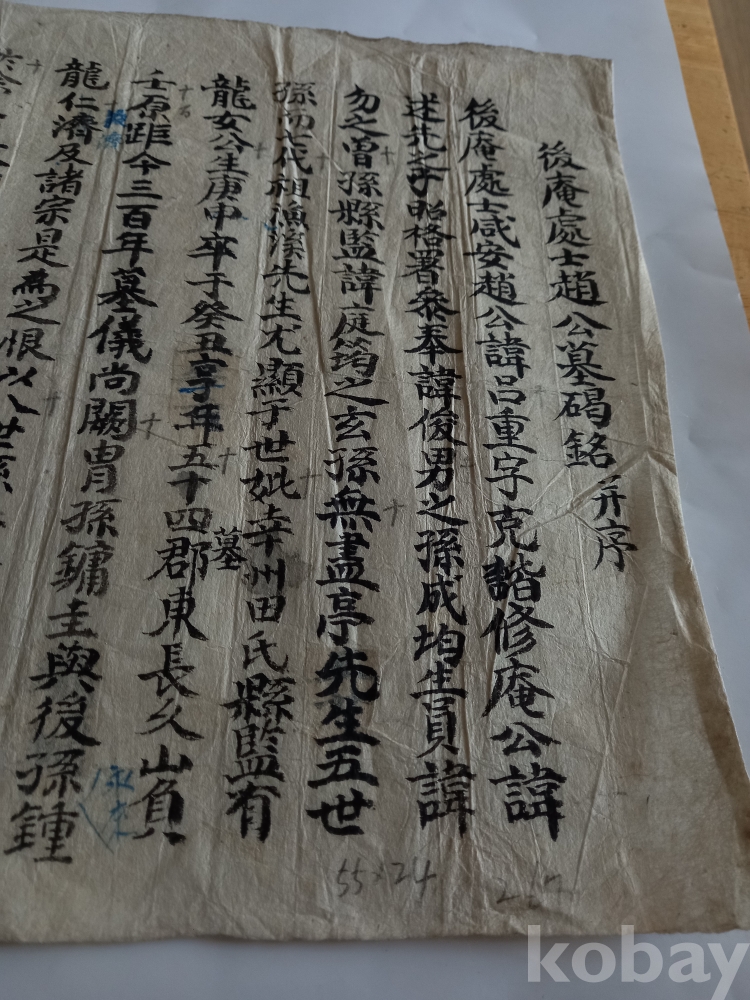 後庵處士趙公墓碣銘 并序
後庵處士咸安趙公諱呂重字克諧修庵公諱
述先之子昭格署參奉諱俊男之孫成均生員諱
勿之曾孫縣監諱庭筠之玄孫無盡亭先生五世
孫而七代祖漁溪先生尤顯于世妣幸州田氏縣監有
龍女公生庚申卒于癸丑享年五十四墓郡東長久山負
壬原距今三百年墓儀尚闕胄孫鏞圭與後孫鍾
龍仁濟及諸宗是爲之恨以八世孫
55×24
kobay